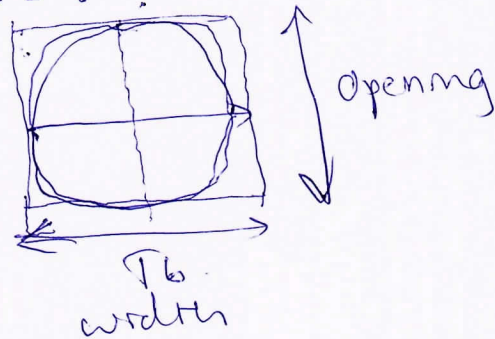 Opening
Tb
width